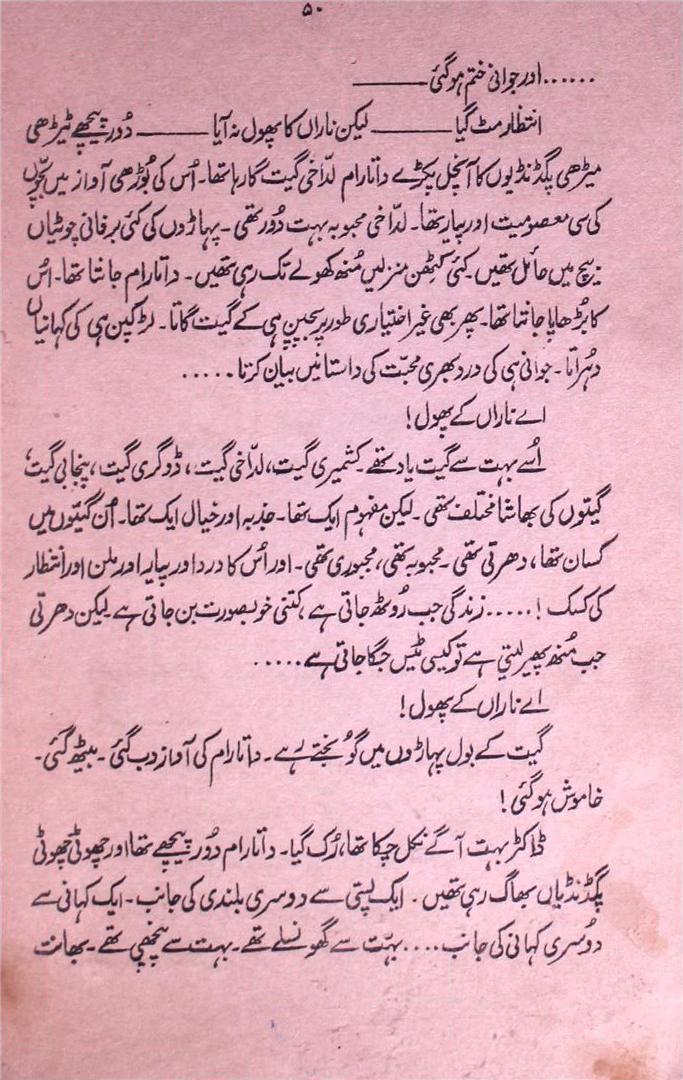 ۵۰
......اور جوانی ختم ہو گئی ————
انتظار مٹ گیا ———— لیکن ناراں کا پھول نہ آیا ———— دُور پیچھے ٹیڑھی
میڑھی پگڈنڈیوں کا آنچل پکڑے داتا رام لدّاخی گیت گا رہا تھا۔ اُس کی بُوڑھی آواز میں بچّوں
کی سی معصومیت اور پیار تھا۔ لدّاخی محبوبہ بہت دُور تھی۔ پہاڑوں کی کئی برفانی چوٹیاں
بیچ میں حائل تھیں۔ کئی کٹھن منزلیں مُنھ کھولے تک رہی تھیں۔ داتا رام جانتا تھا۔ اُس
کا بُڑھاپا جانتا تھا۔ پھر بھی غیر اختیاری طور پر بچپن ہی کے گیت گاتا۔ لڑکپن ہی کی کہانیاں
دہراتا۔ جوانی ہی کی درد بھری محبّت کی داستانیں بیان کرتا.....
اے ناراں کے پھول!
اُسے بہت سے گیت یاد تھے۔ کشمیری گیت، لدّاخی گیت، ڈوگری گیت، پنجابی گیت،
گیتوں کی بھاشا مختلف تھی۔ لیکن مفہوم ایک تھا۔ جذبہ اور خیال ایک تھا۔ اُن گیتوں میں
کسان تھا، دھرتی تھی۔ محبوبہ تھی، مجبوری تھی۔ اور اُس کا درد اور پیار اور ملن اور انتظار
کی کسک!.....زندگی جب رُوٹھ جاتی ہے، کتنی خوبصورت بن جاتی ہے لیکن دھرتی
جب مُنھ پھیر لیتی ہے تو کیسی ٹیس جگا جاتی ہے.....
اے ناراں کے پھول!
گیت کے بول پہاڑوں میں گونجتے رہے۔ داتا رام کی آواز دب گئی۔ بیٹھ گئی۔
خاموش ہو گئی!
ڈاکٹر بہت آگے نکل چکا تھا، رُک گیا۔ داتا رام دُور پیچھے تھا اور چھوٹی چھوٹی
پگڈنڈیاں بھاگ رہی تھیں۔ ایک پستی سے دوسری بلندی کی جانب۔ ایک کہانی سے
دُوسری کہانی کی جانب.... بہت سے گھونسلے تھے۔ بہت سے پنچھی تھے۔ بھانت